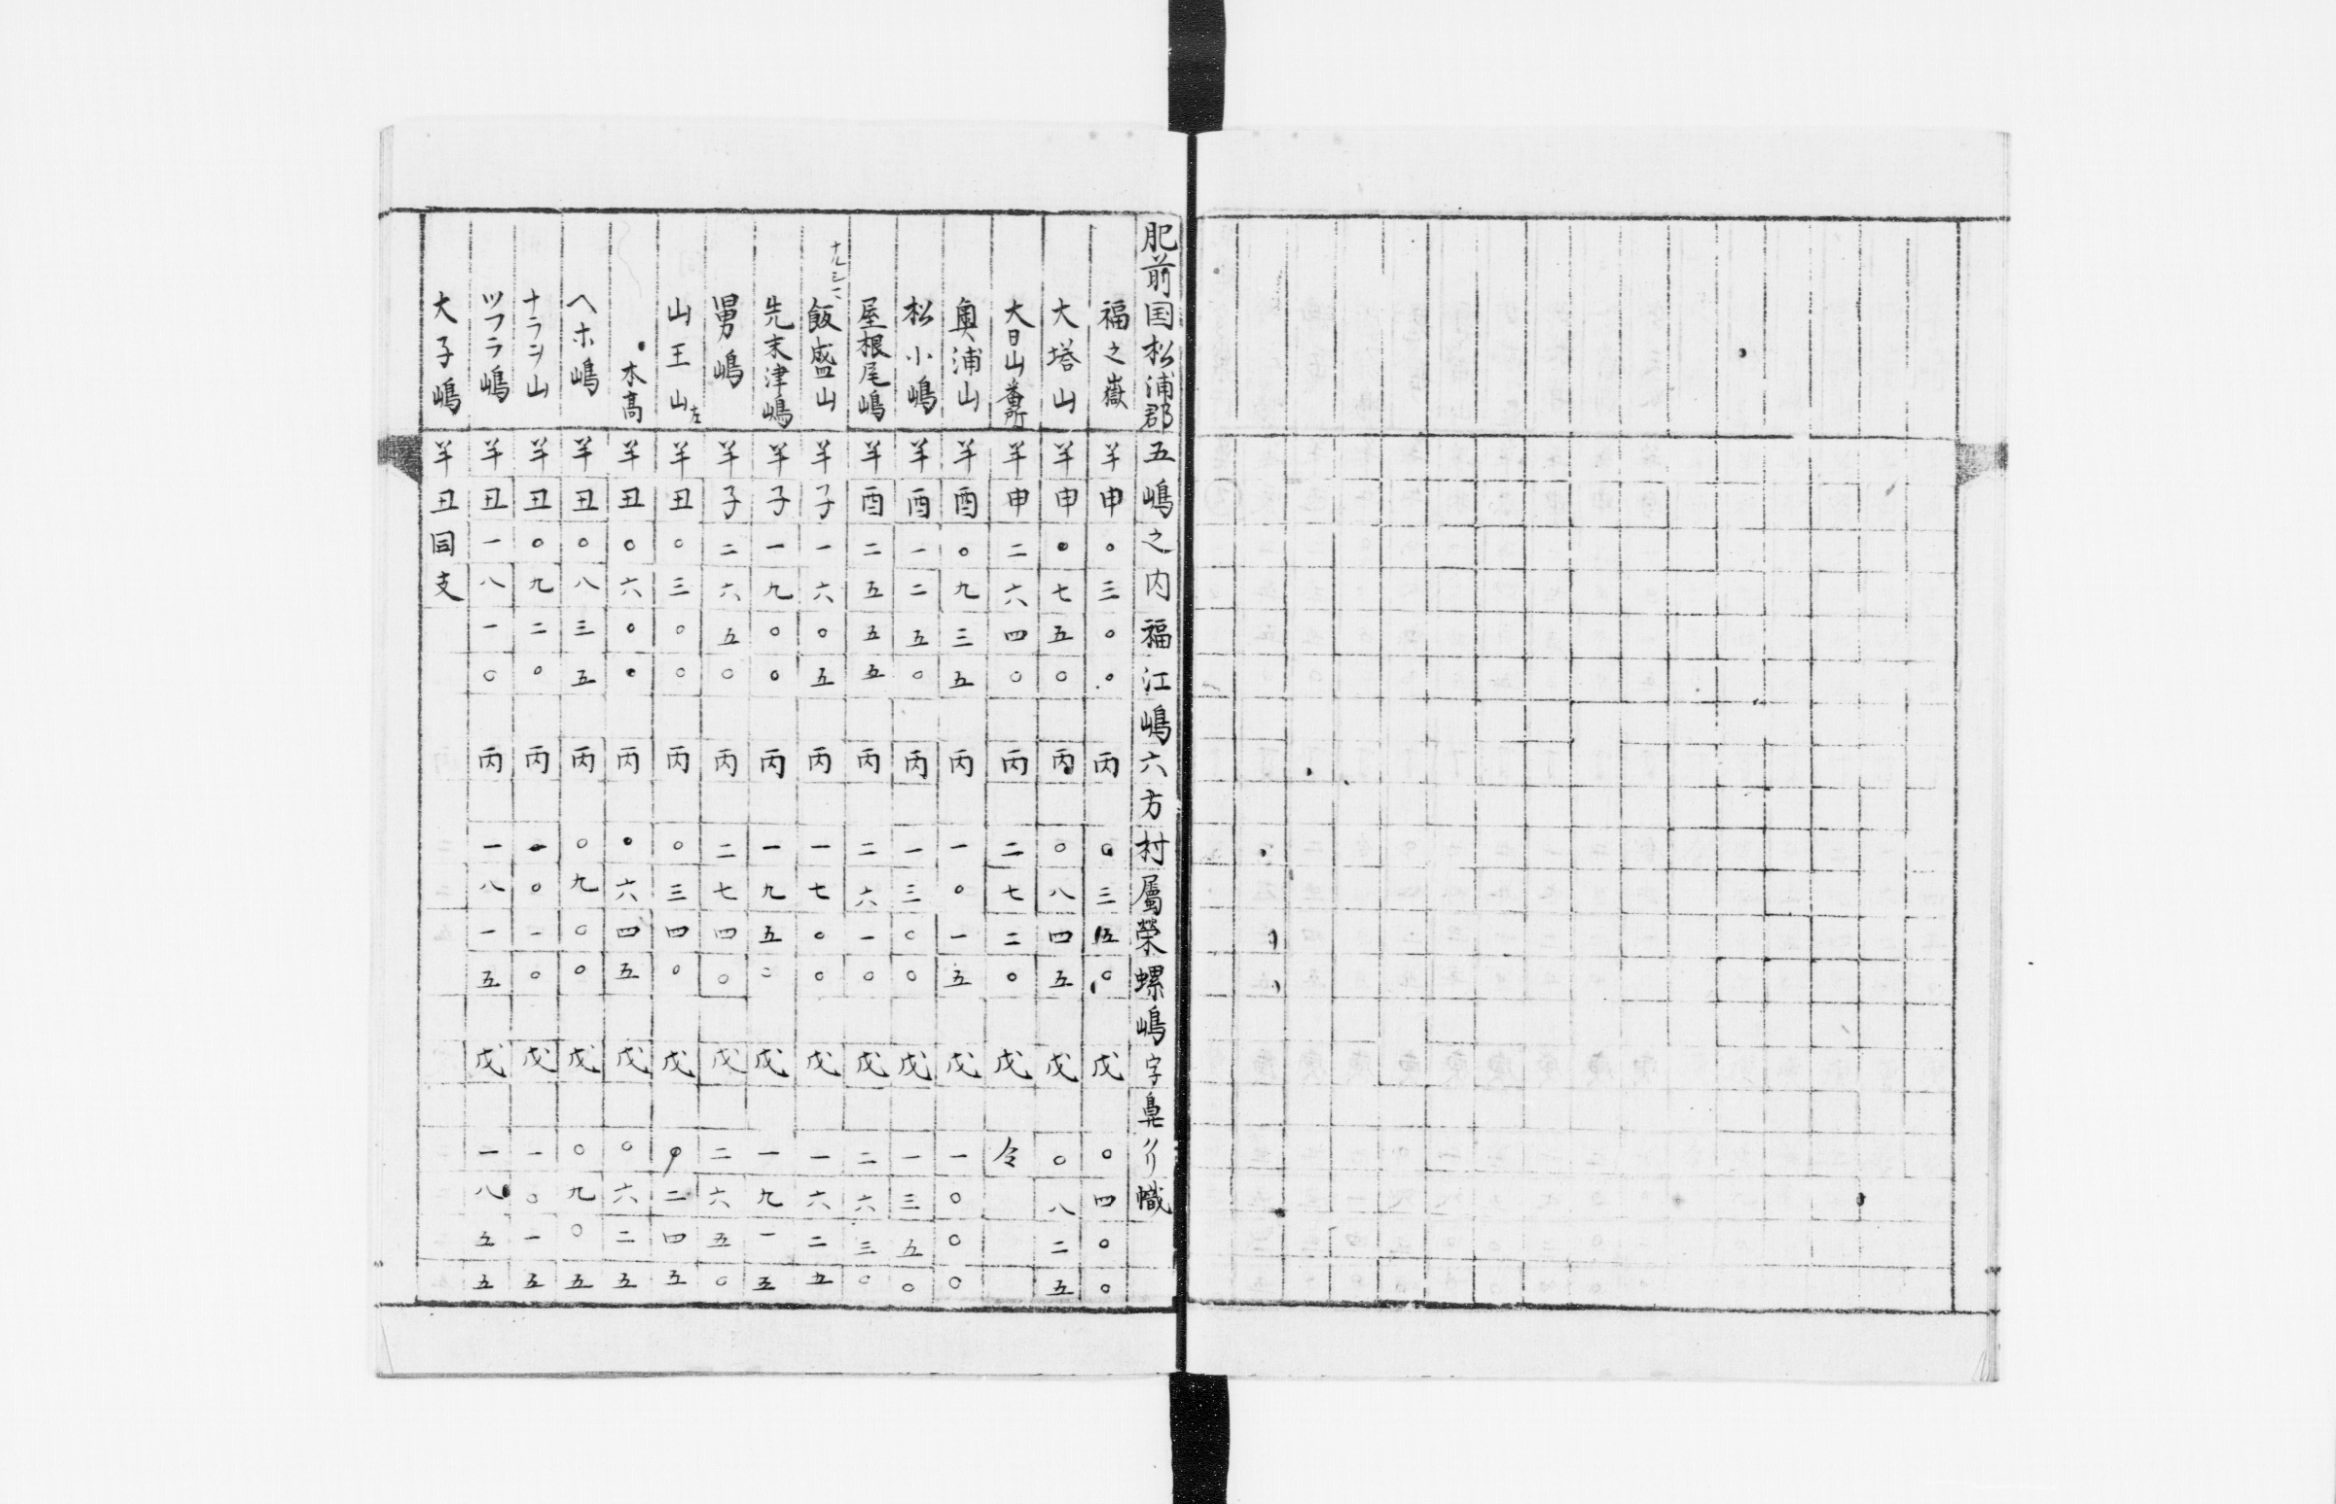 肥前国松浦郡五嶋之内福江嶋六方村屬榮螺嶋字鼻ヨリ幟
福之嶽 羊申〇三〇〇 丙〇三五〇 戊〇四〇〇
大塔山 羊申〇七五〇 丙〇八四五 戊〇八二五
大日山番所 羊申二六四〇 丙二七二〇 戊仝
奥浦山 羊酉〇九三五 丙一〇一五 戊一〇〇〇
松小嶋 羊酉一二五〇 丙一三〇〇 戊一三五〇
屋根尾嶋 羊酉二五五五 丙二六一〇 戊二六三〇
飯盛山 羊子一六〇五 丙一七〇〇 戊一六二五
先末津嶋 羊子一九〇〇 丙一九五〇 戊一九一五
男嶋 羊子二六五〇 丙二七四〇 戊二六五〇
山王山左 羊丑〇三〇〇 丙〇三四〇 戊〇二四五
木高 羊丑〇六〇〇 丙〇六四五 戊〇六二五
ヘホ嶋 羊丑〇八三五 丙〇九〇〇 戊〇九〇五
ナラヲ山 羊丑〇九二〇 丙一〇一〇 戊一〇一五
ツフラ嶋 羊丑一八一〇 丙一八一五 戊一八五五
大子嶋 羊丑同支